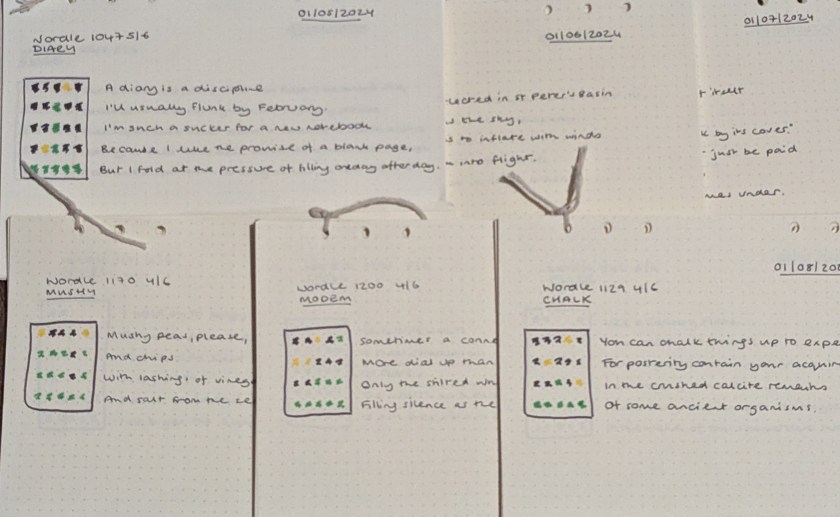 01/05/2024
Wordle 1047 5/6
DIARY
A diary is a discipline
I'll usually flunk by February.
I'm such a sucker for a new notebook
Because I like the promise of a blank page,
But I fold at the pressure of filling one day after day.
01/06/2024
in St Peter's Basin
the sky,
to inflate with winds
into flight.
01/07/2024
itself
by its cover."
just be paid
under.
Wordle 1170 4/6
MUSHY
Mushy peas, please,
And chips
With lashings of vineg
And salt from the se
Wordle 1200 4/6
MODEM
Sometimes a conne
More dial up than
Only the shared wh
Filling silence as the
01/08/202
Wordle 1129 4/6
CHALK
You can chalk things up to expe
For posterity contain your acquir
In the crushed calcite remains
Of some ancient organisms.